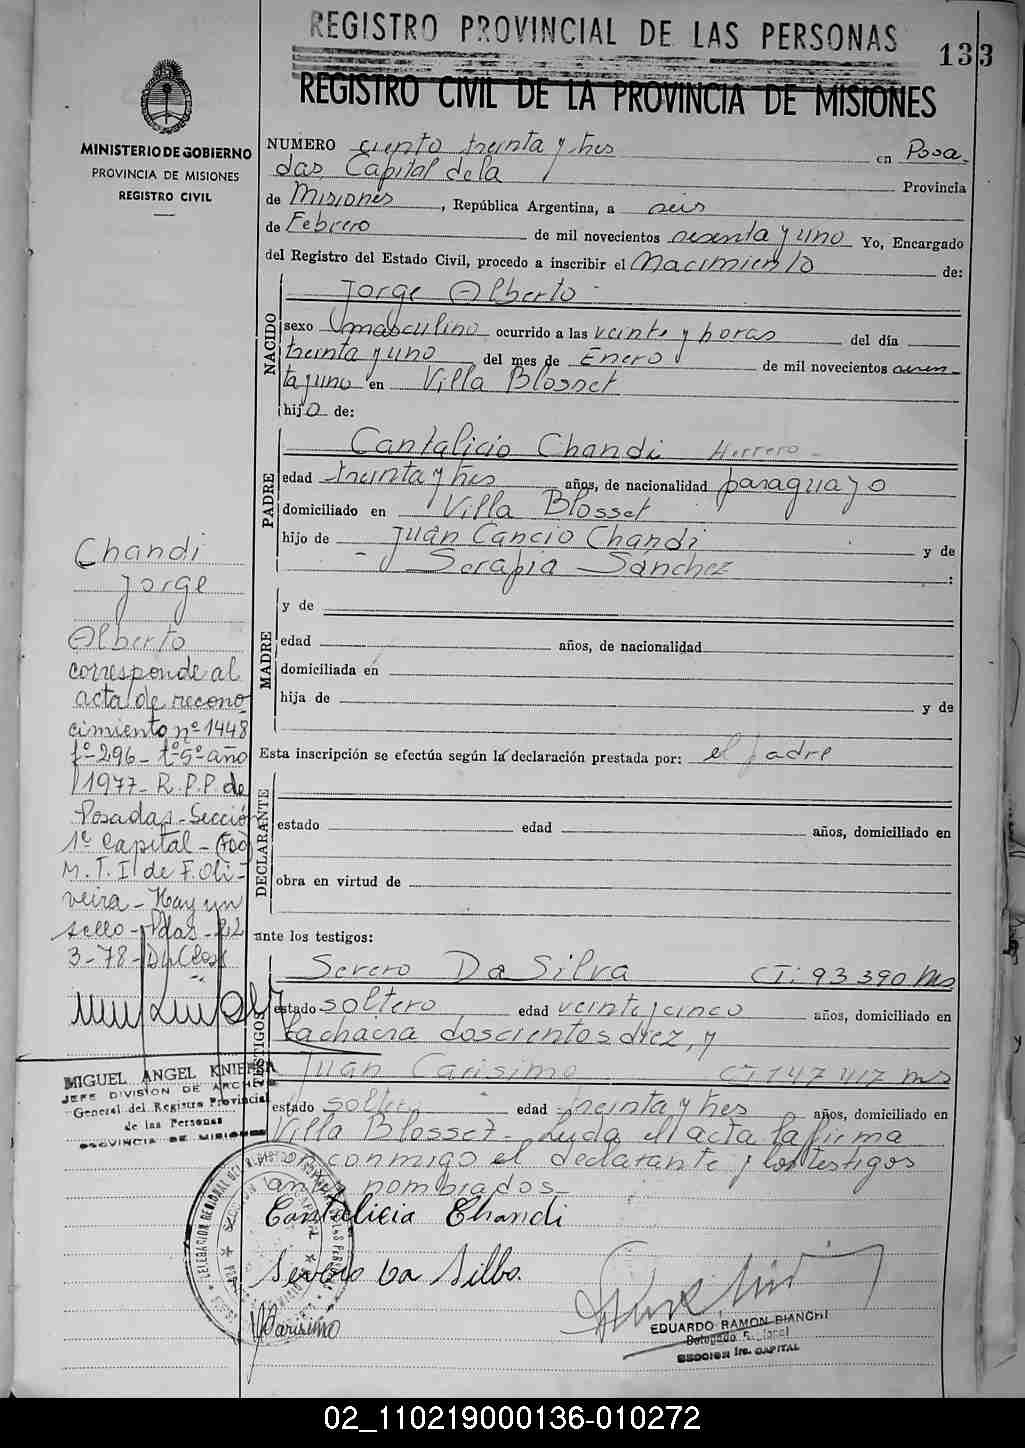 REGISTRO PROVINCIAL DE LAS PERSONAS
133
REGISTRO CIVIL DE LA PROVINCIA DE MISIONES
MINISTERIO DE GOBIERNO
PROVINCIA DE MISIONES
REGISTRO CIVIL
NUMERO ciento treinta y tres en Posa-
das Capital de la Provincia
de Misiones, República Argentina, a seis
de Febrero de mil novecientos sesenta y uno Yo, Encargado
del Registro del Estado Civil, procedo a inscribir el Nacimiento de:
NACIDO
Jorge Alberto
sexo masculino ocurrido a las veinte y horas del día
treinta y uno del mes de Enero de mil novecientos sesen-
ta y uno en Villa Blosset
hijo de:
PADRE
Cantalicio Chandi Herrero
edad treinta y tres años, de nacionalidad paraguayo
domiciliado en Villa Blosset
hijo de Juan Cancio Chandi y de
Serapia Sánchez :
MADRE
y de
edad años, de nacionalidad
domiciliada en
hija de y de
Esta inscripción se efectúa según la declaración prestada por: el padre
DECLARANTE
estado edad años, domiciliado en
obra en virtud de
ante los testigos:
TESTIGOS
Severo Da Silva CI: 93390 Ms
estado soltero edad veinte y cinco años, domiciliado en
La chacra doscientos diez, y
Juan Carisimo CI 147417 Ms
estado soltero edad treinta y tres años, domiciliado en
Villa Blosset - Leida el acta la firma
conmigo el declarante y los testigos
antes nombrados -
Cantalicia Chandi
Severo Da Silba.
JCarisimo
EDUARDO RAMON BIANCHI
Delegado Regional
SECCION 1ra. CAPITAL
Chandi
Jorge
Alberto
corresponde al
acta de recono-
cimiento nº 1448
fº-296- tº-5º-año
1977- R.P.P. de
Posadas-Sección
1º Capital-
M.T.I de F. Oli-
veira- Hay un
sello- Pdas- 22
3-78-
MIGUEL ANGEL
JEFE DIVISION DE ARCHIVO
General del Registro Provincial
de las Personas
PROVINCIA DE MISIONES
02_110219000136-010272